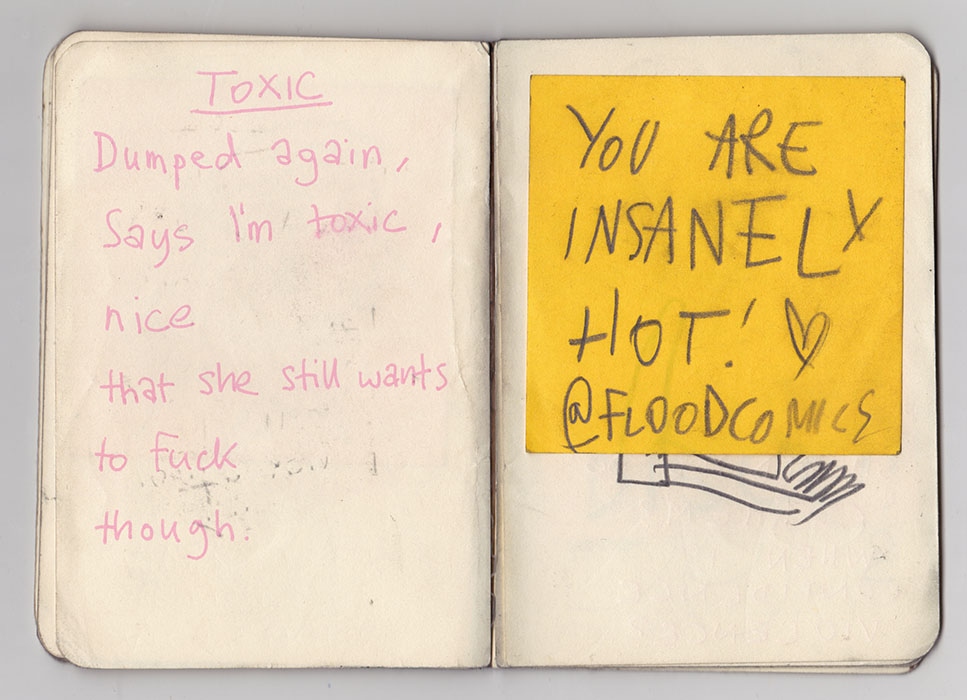 TOXIC
Dumped again,
Says I'm toxic,
nice
that she still wants
to Fuck
though.
YOU ARE
INSANELY
HOT! ♡
@FLOODCOMICS